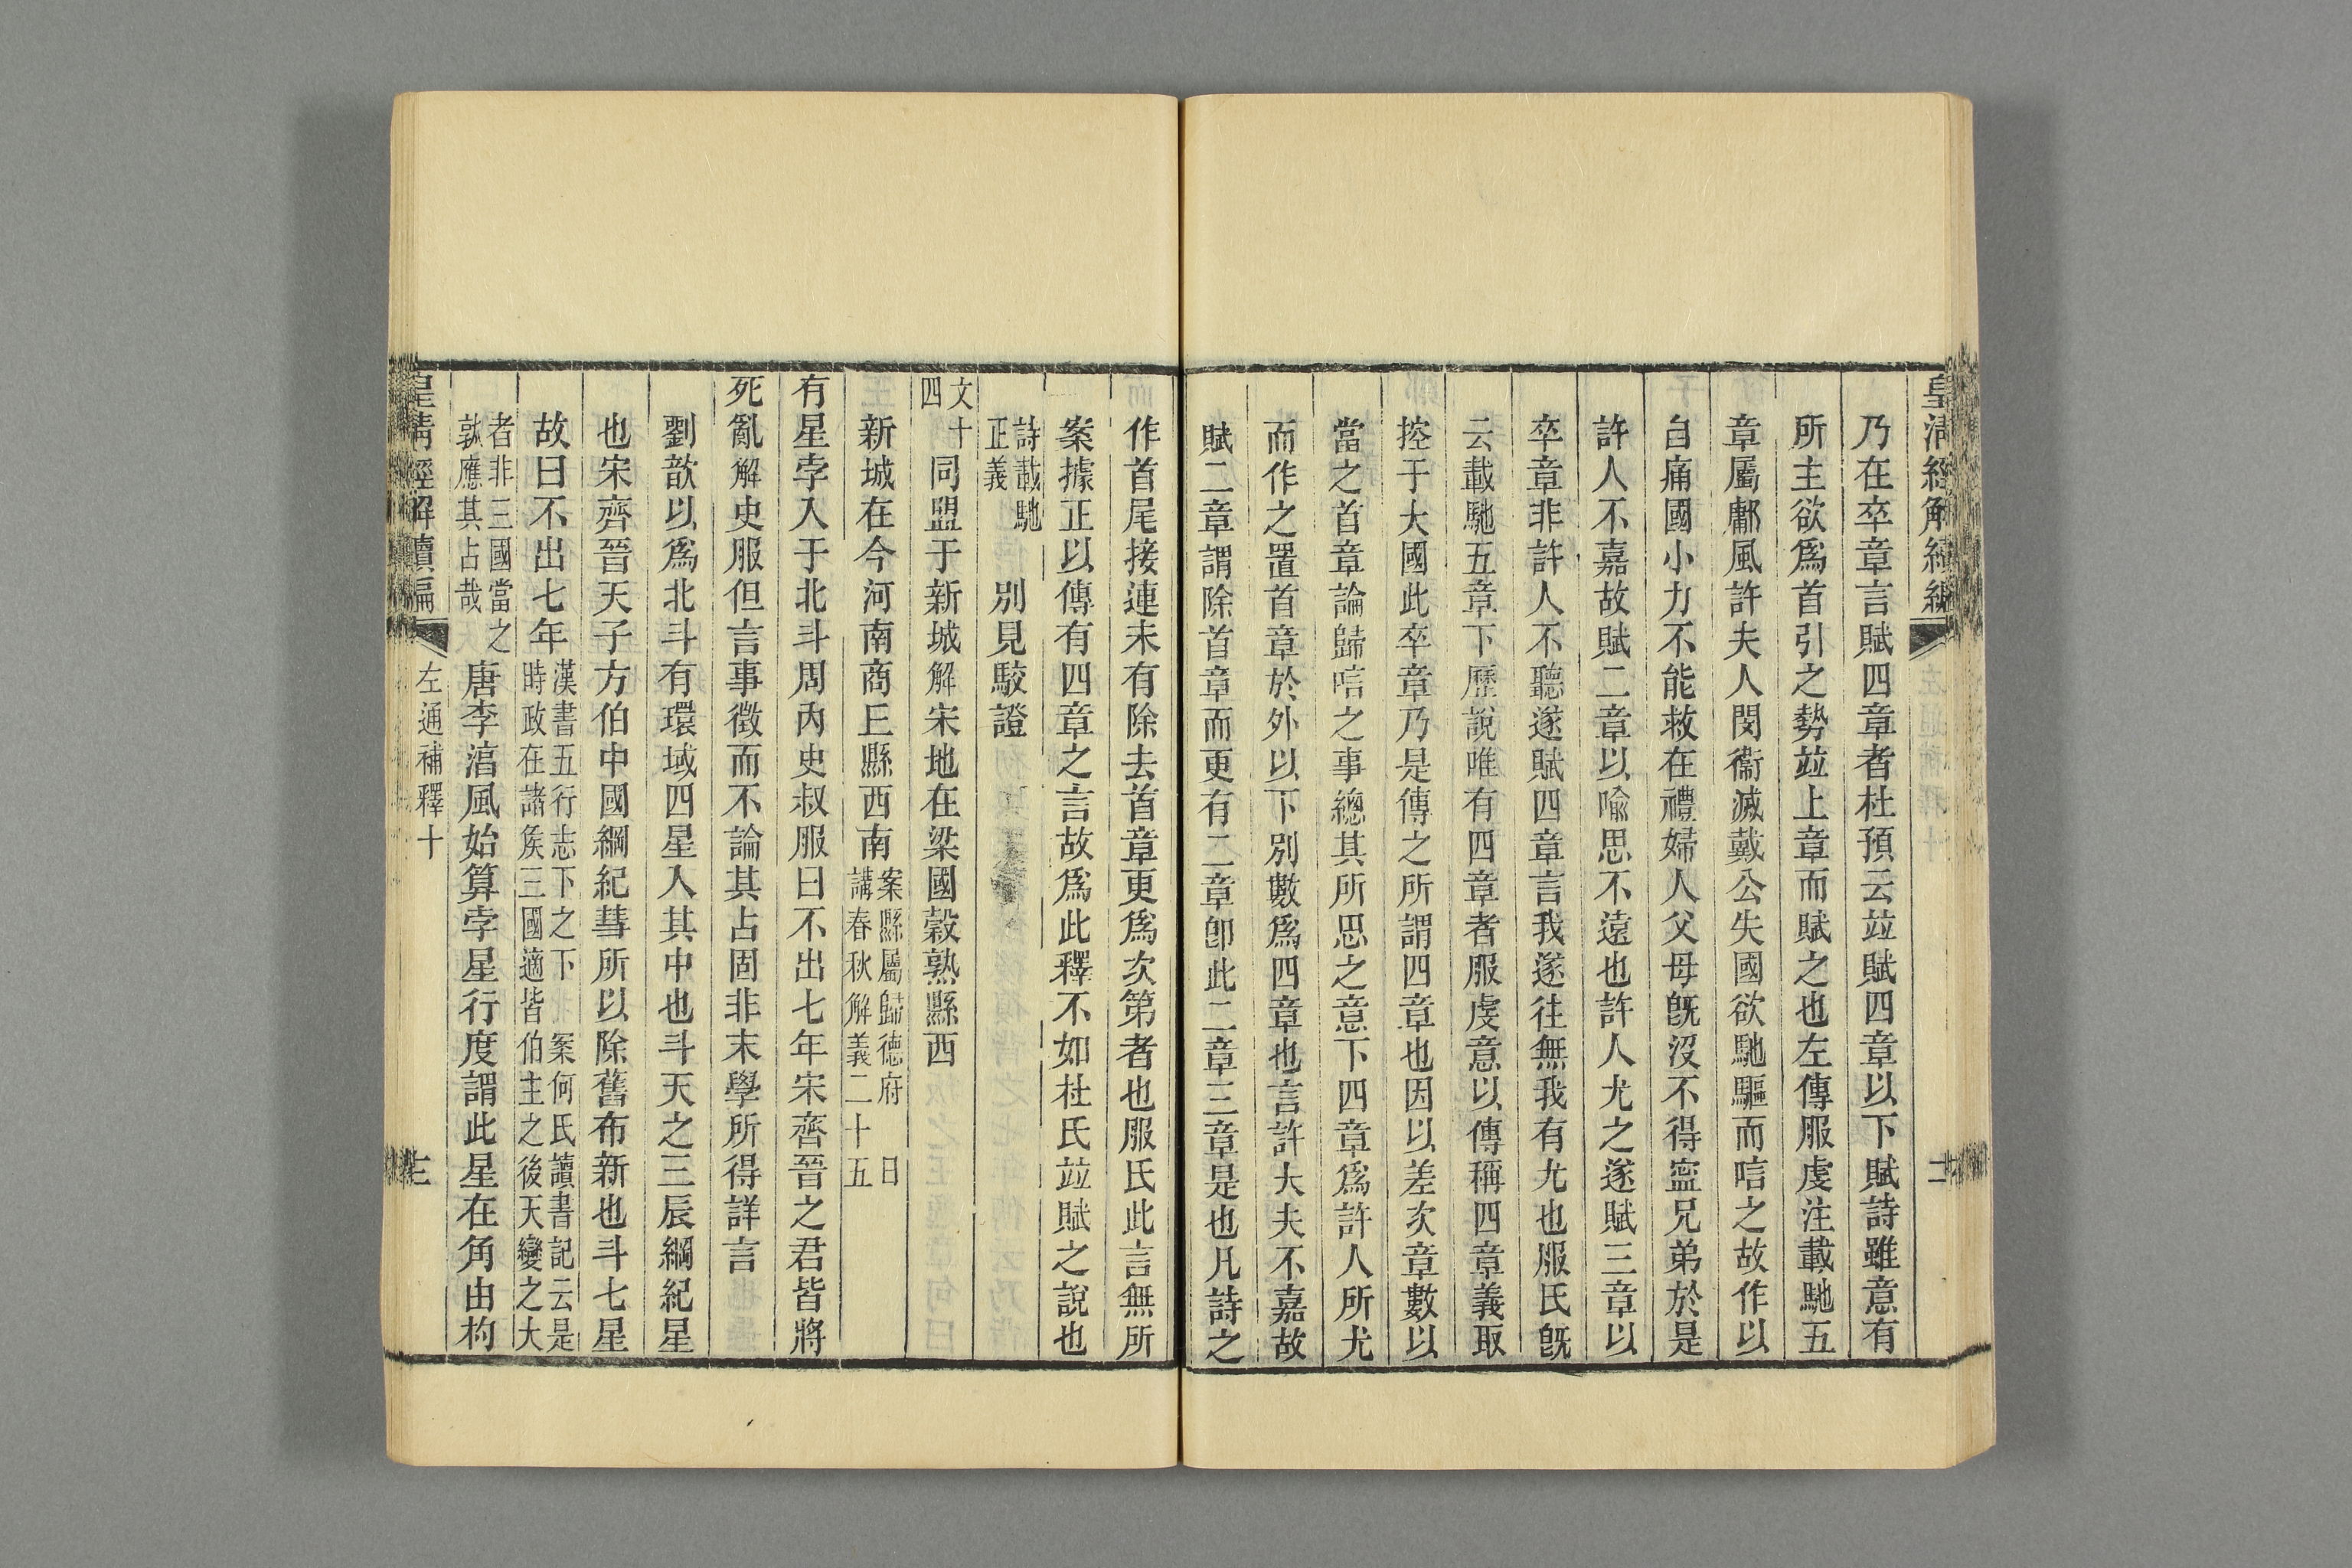 皇清經解續編
十二
乃在卒章言賦四章者杜預云竝賦四章以下賦詩雖意有
所主欲爲首引之勢竝上章而賦之也左傳服虔注載馳五
章屬鄘風許夫人閔衞滅戴公失國欲馳驅而唁之故作以
自痛國小力不能救在禮婦人父母旣沒不得寍兄弟於是
許人不嘉故賦二章以喻思不遠也許人尤之遂賦三章以
卒章非許人不聽遂賦四章言我遂往無我有尤也服氏旣
云載馳五章下歷說唯有四章者服虔意以傳稱四章義取
控于大國此卒章乃是傳之所謂四章也因以差次章數以
當之首章論歸唁之事總其所思之意下四章爲許人所尤
而作之置首章於外以下別數爲四章也言許大夫不嘉故
賦二章謂除首章而更有二章卽此二章三章是也凡詩之
作首尾接連未有除去首章更爲次第者也服氏此言無所
案據正以傳有四章之言故爲此釋不如杜氏竝賦之說也
詩載馳
正義
別見駮證
文十
四
同盟于新城解宋地在梁國穀熟縣西
新城在今河南商丘縣西南
案縣屬歸德府 日
講春秋解義二十五
有星孛入于北斗周內史叔服曰不出七年宋齊晉之君皆將
死亂解史服但言事徵而不論其占固非末學所得詳言
劉歆以爲北斗有環域四星入其中也斗天之三辰綱紀星
也宋齊晉天子方伯中國綱紀彗所以除舊布新也斗七星
故曰不出七年
漢書五行志下之下 案何氏讀書記云是
時政在諸矦三國適皆伯主之後天變之大
者非三國當之
孰應其占哉
唐李淳風始算孛星行度謂此星在角由杓
皇清經解續編
左通補釋十
十三